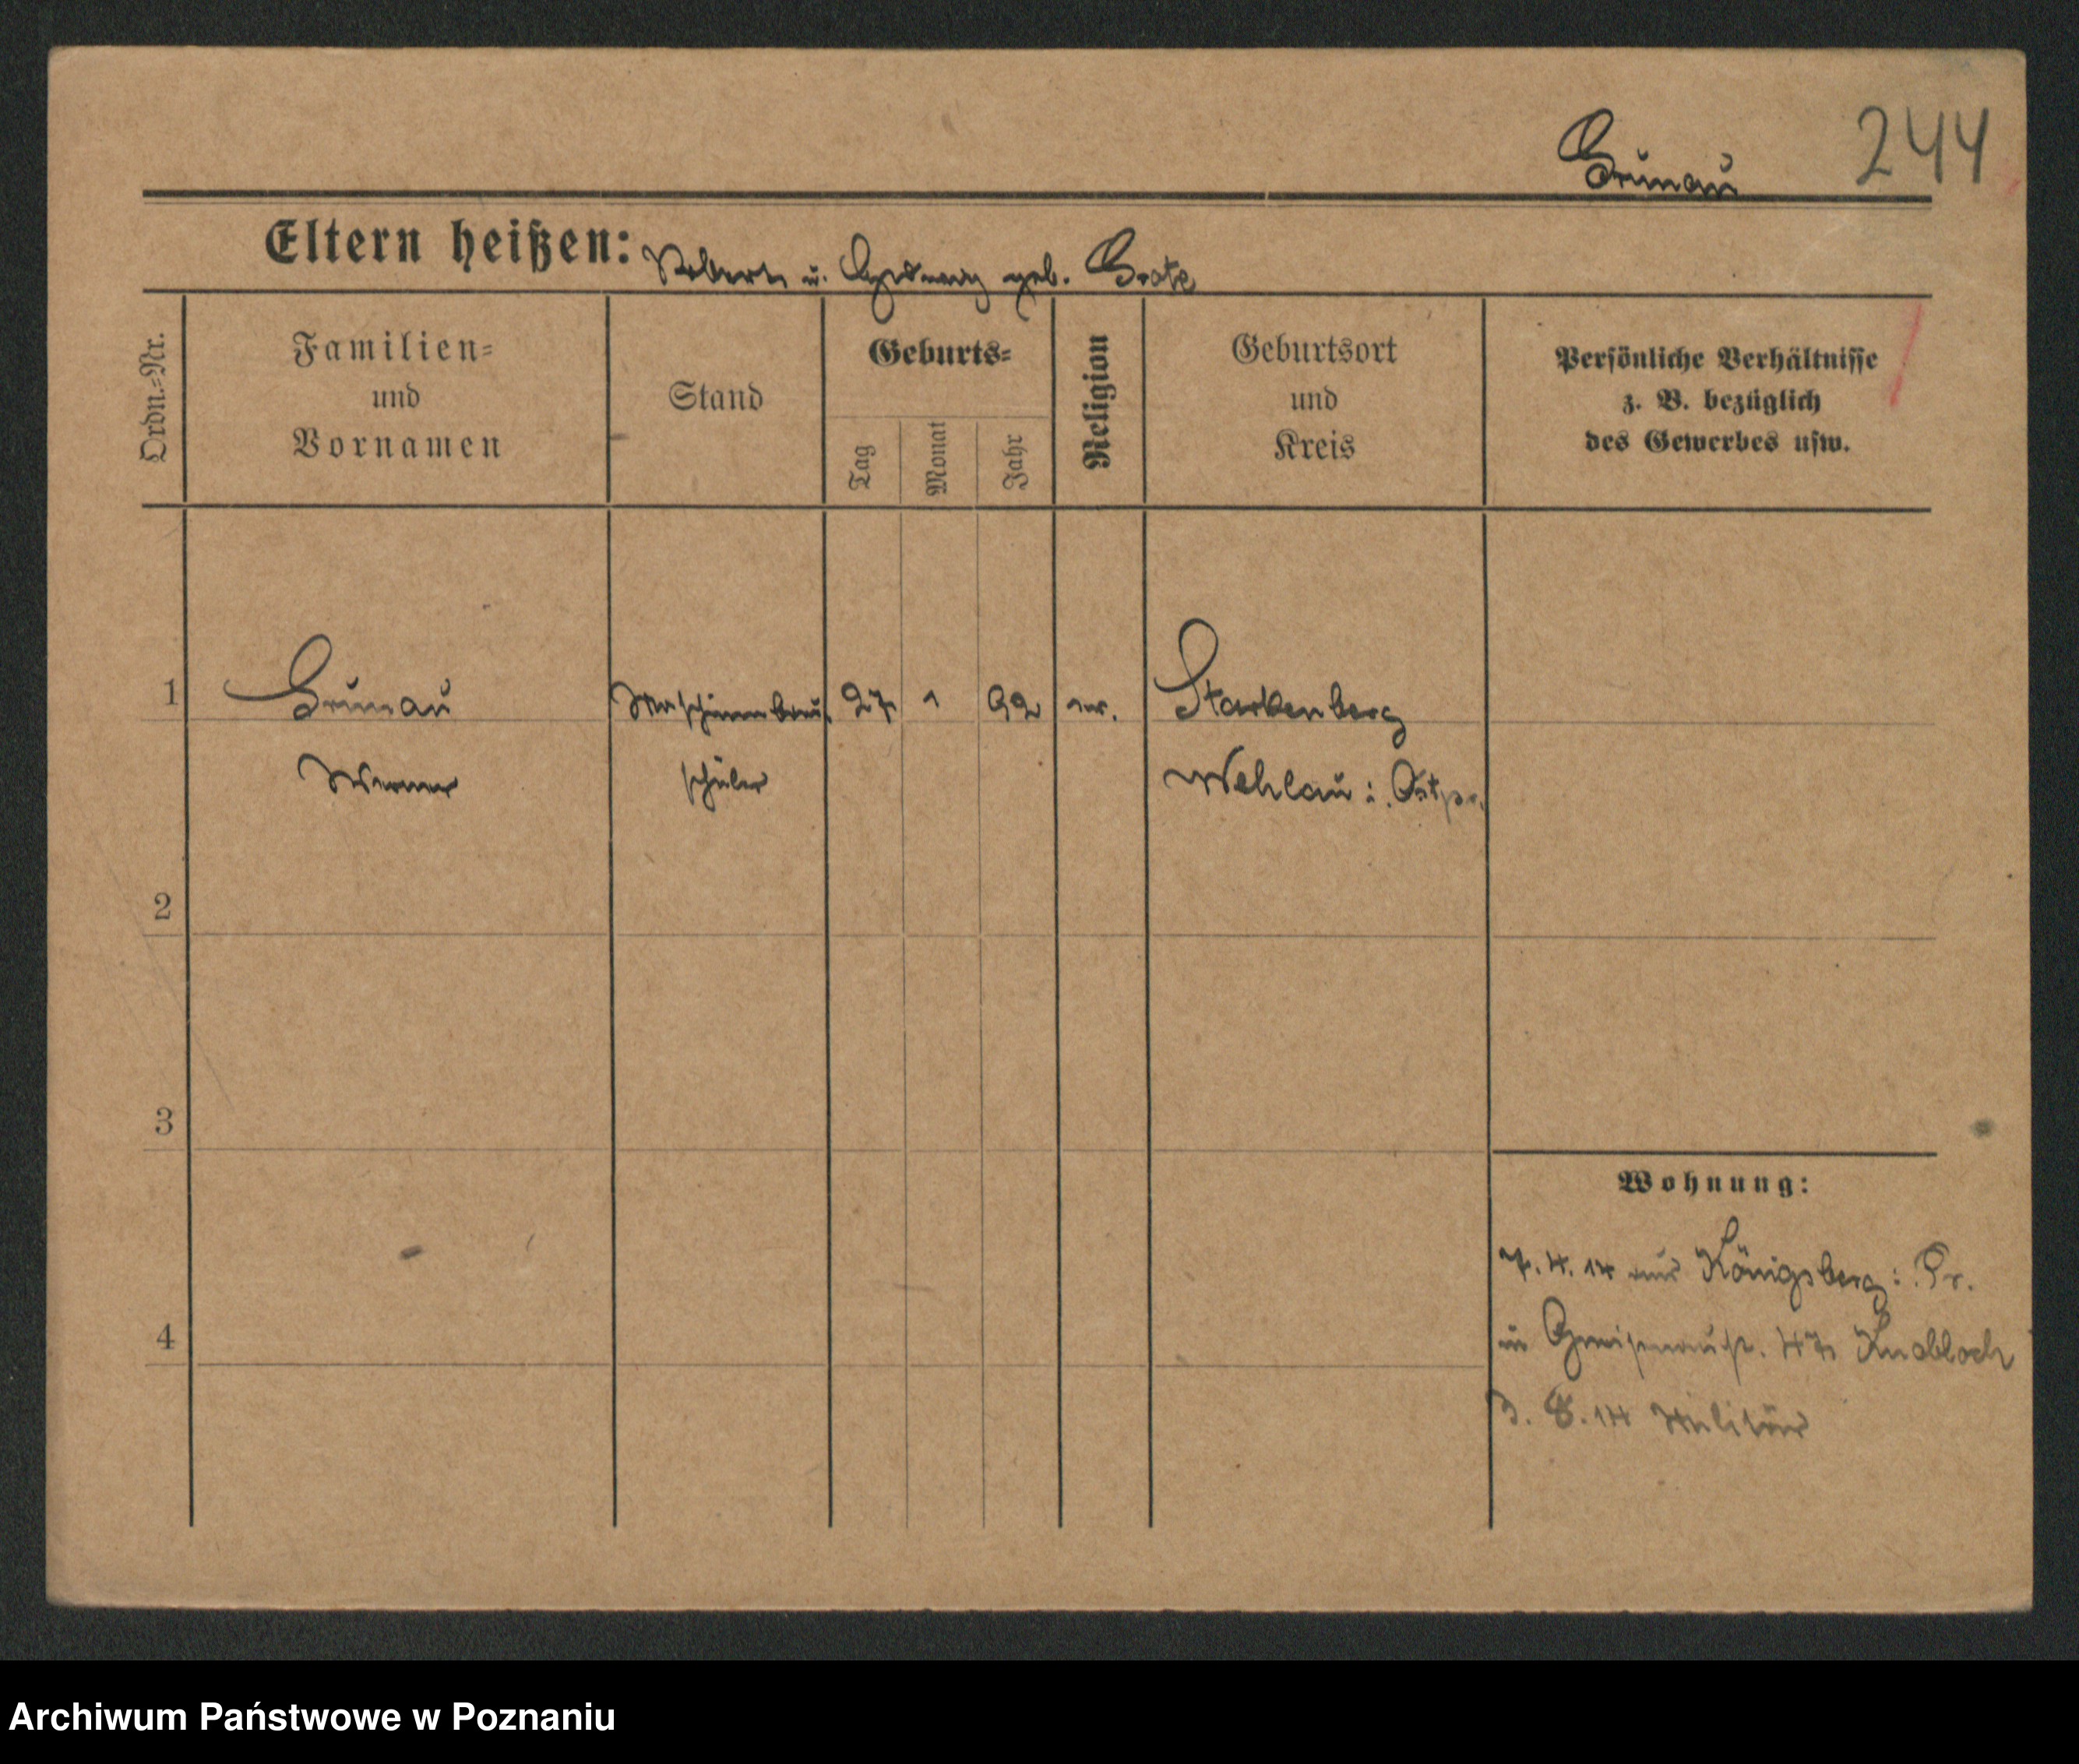 244
Grunau
Eltern heißen: Robert u. Hedwig geb. Grote
Ordn.-Nr.
Familien-
und
Vornamen
Stand
Geburts-
Tag
Monat
Jahr
Religion
Geburtsort
und
Kreis
Persönliche Verhältnisse
z. B. bezüglich
des Gewerbes usw.
1 Grunau Maschinenbau 27 1 92 ev. Starkenberg
Werner schüler Wehlau i. Ostpr.
2
3
4
Wohnung:
7. 4. 14 aus Königsberg i. Pr.
in Gneisenaustr. 47 Knobloch
3. 8. 14 Militär
Archiwum Państwowe w Poznaniu